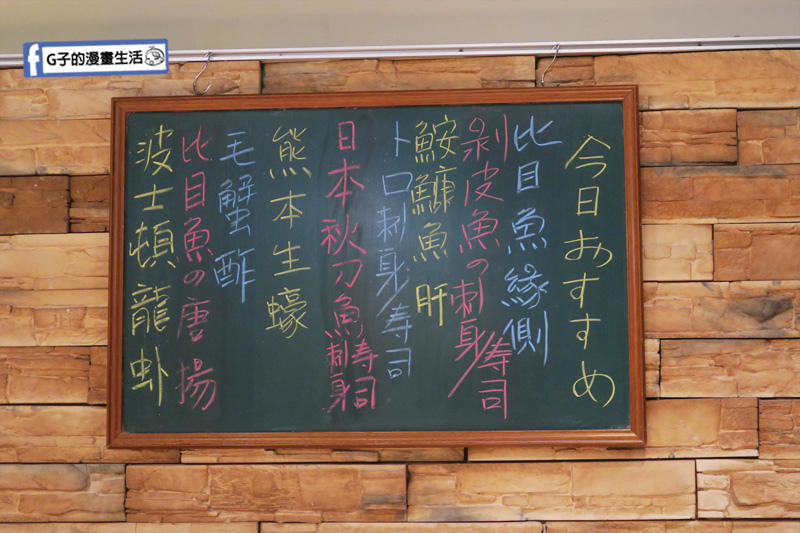 G子的漫畫生活
今日おすすめ
比目魚緣側
剝皮魚の刺身/寿司
鮟鱇魚肝
トロ刺身/寿司
日本秋刀魚刺身/寿司
熊本生蠔
毛蟹酢
比目魚の唐揚
波士頓龍虾